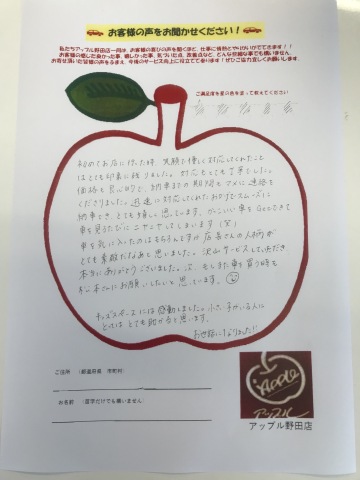 お客様の声をお聞かせください！
私たちアップル野田店一同は、お客様の喜びの声を聞くほど、仕事に情熱とやりがいがでてきます！！
お客様の嬉しかった事、楽しかった事、気づいた点、改善点など、どんな些細な事でも構いません、
お寄せ頂いた皆様の声をふまえ、今後のサービス向上に役立てて参ります！ぜひご協力宜しくお願いします。
ご満足度を星の数を塗って教えてください
初めてお店に行った時、笑顔で優しく対応してくれたことは
とても印象に残りました。対応もとても丁寧でした。
価格も良心的で、納車までの期間もマメに連絡を
くださりました。迅速に対応してくれたおかげでスムーズに
納車でき、とても嬉しく思っています。かっこいい車をGetできて
車を見るたびにニヤニヤしてしまいます（笑）
車を気に入ったのはもちろんですが店長さんの人柄が
とても素敵だなあと思いました。沢山サービスしていただき、
本当にありがとうございました。
もしまた車を買う時も
さんにお願いしたいと思っています。
キッズスペースには感動しました。小さい子がいる人に
とってはとても助かると思います。
お世話になりました!!
ご住所 （都道府県 市町村）
お名前 （苗字だけでも構いません）
Apple
アップル
アップル野田店